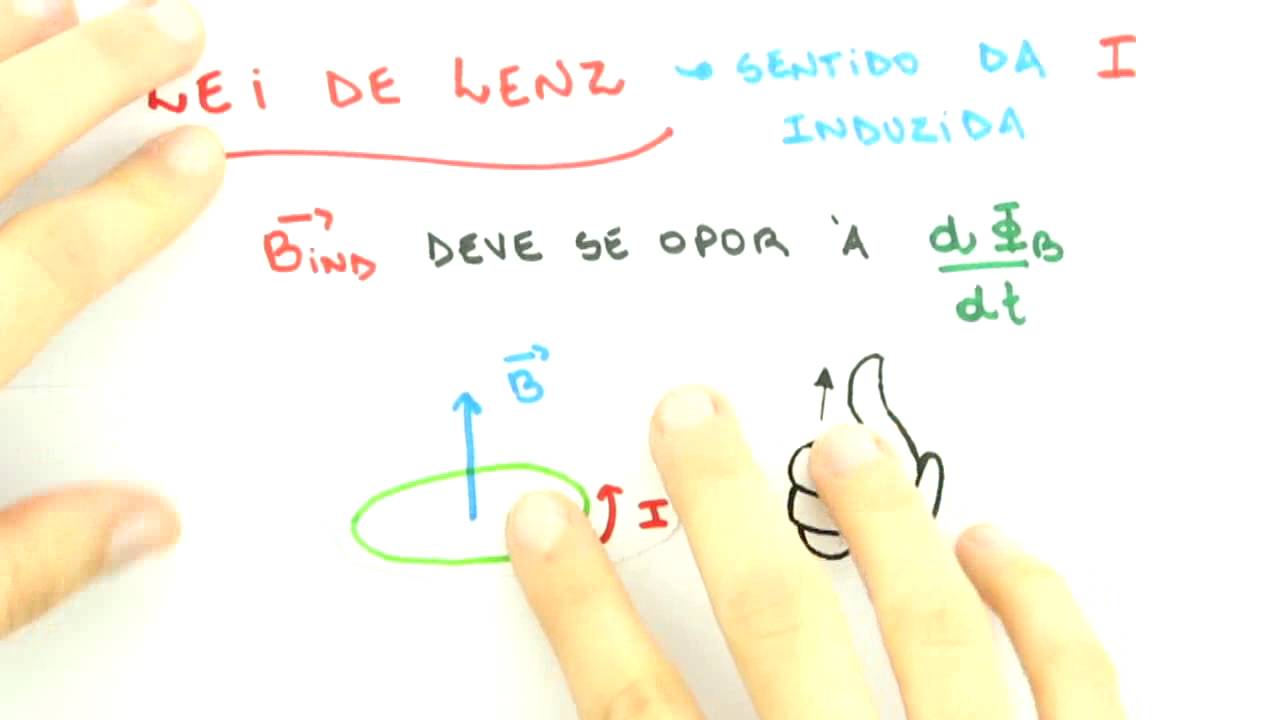 LEI DE LENZ → SENTIDO DA I
INDUZIDA
B⃗IND DEVE SE OPOR À dΦB/dt
B⃗
I